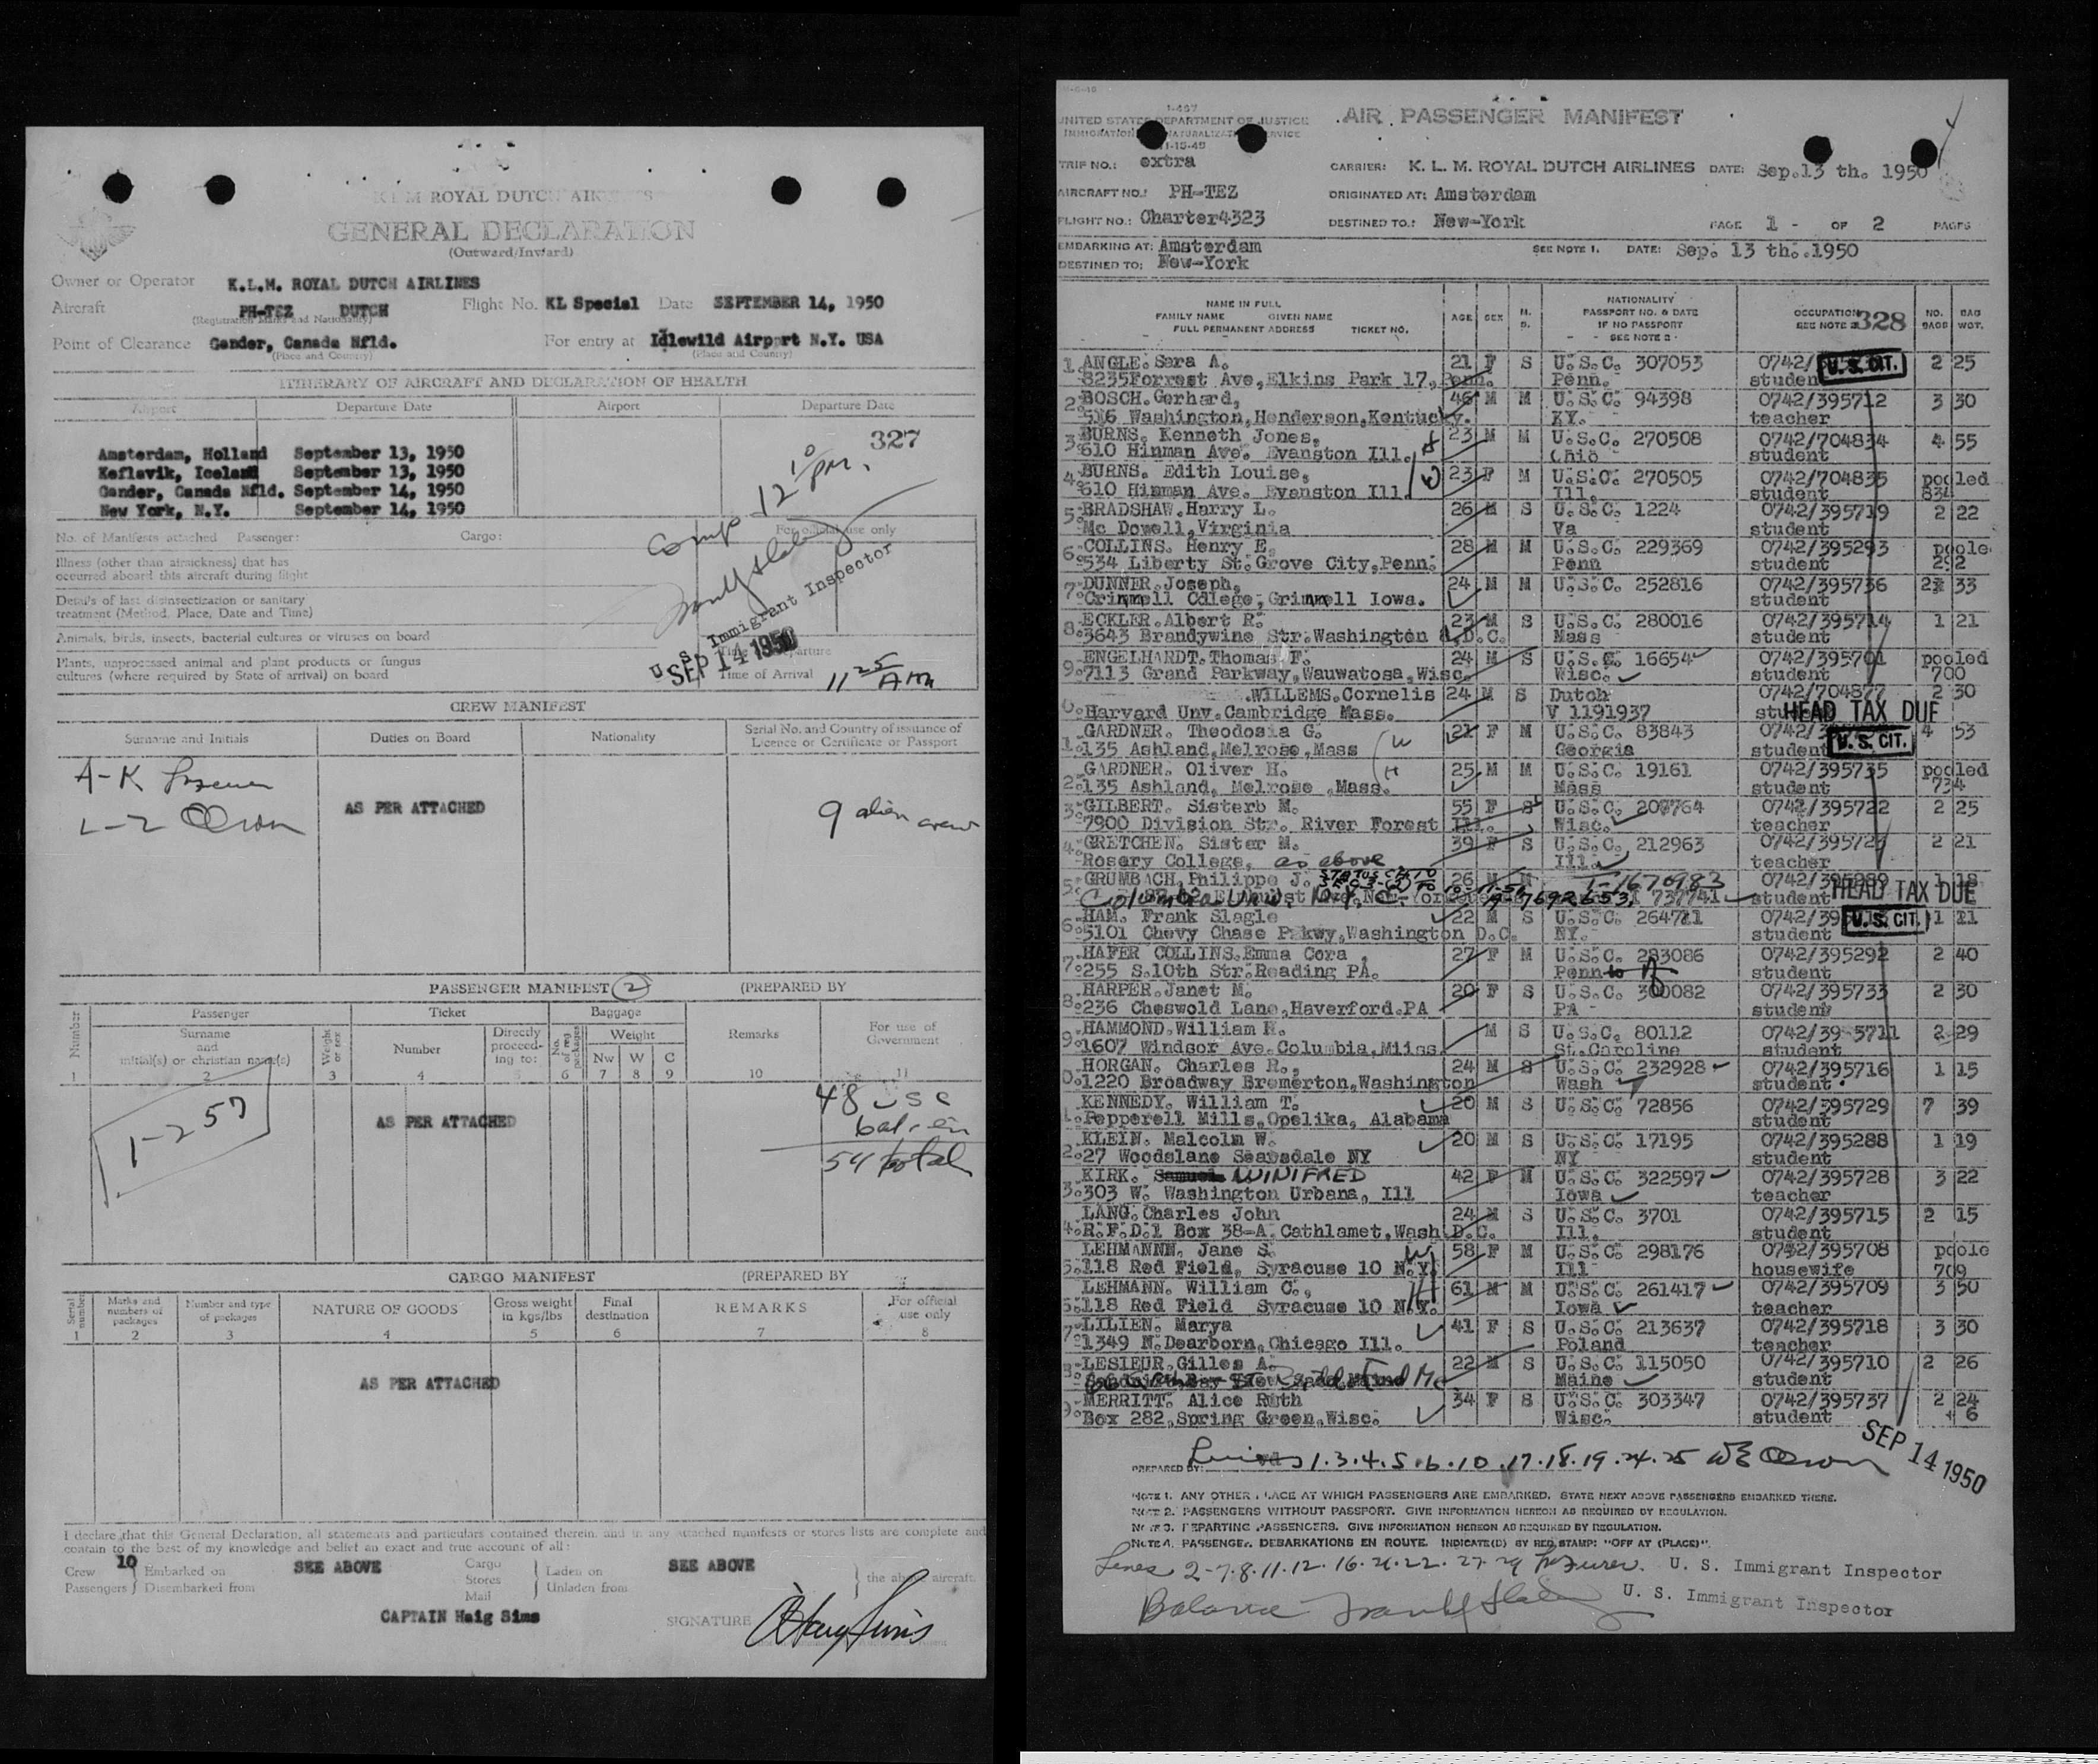 K L M ROYAL DUTCH AIRLINES
GENERAL DECLARATION
(Outward/Inward)
Owner or Operator K.L.M. ROYAL DUTCH AIRLINES
Aircraft PH-TEZ DUTCH Flight No. KL Special Date SEPTEMBER 14, 1950
(Registration Marks and Nationality)
Point of Clearance Gander, Canada Nfld. For entry at Idlewild Airport N.Y. USA
(Place and Country) (Place and Country)
ITINERARY OF AIRCRAFT AND DECLARATION OF HEALTH
Airport Departure Date Airport Departure Date
327
Amsterdam, Holland September 13, 1950
Keflavik, Iceland September 13, 1950
Gander, Canada Nfld. September 14, 1950
New York, N.Y. September 14, 1950
Comp 12 10 pm.
No. of Manifests attached Passenger: Cargo: For official use only
Illness (other than airsickness) that has
occurred aboard this aircraft during flight
Details of last disinsectization or sanitary
treatment (Method, Place, Date and Time)
Animals, birds, insects, bacterial cultures or viruses on board
Plants, unprocessed animal and plant products or fungus
cultures (where required by State of arrival) on board
U. S. Immigrant Inspector
SEP 14 1950
Time of Arrival 11 25 Am
CREW MANIFEST
Surname and Initials Duties on Board Nationality Serial No. and Country of issuance of
Licence or Certificate or Passport
A-K
L-Z Olson
AS PER ATTACHED
9 alien crew
PASSENGER MANIFEST 2 (PREPARED BY
Number Passenger Ticket Baggage Remarks For use of
Government
Surname
and
initial(s) or christian name(s) Weight or sex Number Directly
proceed-
ing to: No. of reg packages Weight
Nw W C
1 2 3 4 5 6 7 8 9 10 11
1-257
AS PER ATTACHED
48 usc
6 alien
54 total
CARGO MANIFEST (PREPARED BY
Serial number Marks and
numbers of
packages Number and type
of packages NATURE OF GOODS Gross weight
in kgs/lbs Final
destination REMARKS For official
use only
1 2 3 4 5 6 7 8
AS PER ATTACHED
I declare that this General Declaration, all statements and particulars contained therein, and in any attached manifests or stores lists are complete and
contain to the best of my knowledge and belief an exact and true account of all:
Crew 10 Embarked on SEE ABOVE Cargo Laden on SEE ABOVE the above aircraft.
Passengers Disembarked from Stores Unladen from
Mail
CAPTAIN Haig Sims SIGNATURE
I-467
UNITED STATES DEPARTMENT OF JUSTICE
IMMIGRATION NATURALIZATION SERVICE
AIR PASSENGER MANIFEST
TRIP NO.: extra CARRIER: K. L. M. ROYAL DUTCH AIRLINES DATE: Sep.13 th. 1950
AIRCRAFT NO.: PH-TEZ ORIGINATED AT: Amsterdam
FLIGHT NO.: Charter4323 DESTINED TO.: New-York PAGE 1 - OF 2 PAGES
EMBARKING AT: Amsterdam SEE NOTE 1. DATE: Sep. 13 th..1950
DESTINED TO; New-York
NAME IN FULL
FAMILY NAME GIVEN NAME
FULL PERMANENT ADDRESS TICKET NO. AGE SEX M. S. NATIONALITY
PASSPORT NO. & DATE
IF NO PASSPORT
SEE NOTE 2 - OCCUPATION
SEE NOTE 328 NO.
BAGS BAG
WGT.
1. ANGLE.Sara A. 21 F S U.S.C. 307053 0742/ U.S. CIT. 2 25
8235Forrest Ave,Elkins Park 17,Penn. Penn. student
2. BOSCH.Gerhard, 46 M M U.S.C. 94398 0742/395712 3 30
516 Washington,Henderson,Kentucky. KY. teacher
3. BURNS. Kenneth Jones, H 23 M M U.S.C. 270508 0742/704834 4 55
610 Hinman Ave. Evanston Ill. Ohio student
4. BURNS. Edith Louise, W 23 F M U.S.C. 270505 0742/704835 pooled
610 Hinman Ave. Evanston Ill. Ill. student 834
5. BRADSHAW.Harry L. 26 M S U.S.C. 1224 0742/395719 2 22
Mc Dowell,Virginia Va student
6. COLLINS. Henry E. 28 M M U.S.C. 229369 0742/395293 poole
534 Liberty St.Grove City,Penn. Penn student 292
7. DUNNER.Joseph, 24 M M U.S.C. 252816 0742/395736 2 33
Grinnell College,Grinnell Iowa. student
8. ECKLER.Albert R. 23 M S U.S.C. 280016 0742/395714 1 21
3643 Brandywine Str.Washington D.C. Mass student
9. ENGELHARDT.Thomas F. 24 M S U.S.C. 16654 0742/395701 pooled
7113 Grand Parkway,Wauwatosa,Wisc. Wisc. student 700
0. .WILLEMS.Cornelis 24 M S Dutch 0742/704877 2 30
Harvard Unv.Cambridge Mass. V 1191937 student HEAD TAX DUE
1. GARDNER. Theodosia G. W 21 F M U.S.C. 83843 0742/ U.S. CIT. 4 53
135 Ashland,Melrose,Mass Georgia student
2. GARDNER. Oliver H. H 25 M M U.S.C. 19161 0742/395735 pooled
135 Ashland, Melrose ,Mass. Mass student 734
3. GILBERT. Sisterb M. 55 F S U.S.C. 207764 0742/395722 2 25
7900 Division Str. River Forest Ill. Wisc. teacher
4. GRETCHEN. Sister M. 39 F S U.S.C. 212963 0742/395723 2 21
Rosary College, as above Ill. teacher
5. GRUMBACH.Philippe J. 26 M M T-1676983 0742/395289 1 18
Columbia Univ. N.Y. 737741 student HEAD TAX DUE
6. HAM. Frank Slagle 22 M S U.S.C. 264711 0742/39 U.S. CIT. 1 11
5101 Chevy Chase Pkwy,Washington D.C. NY. student
7. HAFER COLLINS.Emma Cora , 27 F M U.S.C. 293086 0742/395292 2 40
255 S.10th Str.Reading PA. Penn student
8. HARPER.Janet M. 20 F S U.S.C. 300082 0742/395733 2 30
236 Cheswold Lane,Haverford.PA PA - student
9. HAMMOND.William H. M S U.S.C. 80112 0742/39-5711 2 29
1607 Windsor Ave.Columbia,Miiss. St.Caroline student
0. HORGAN. Charles R., 24 M S U.S.C. 232928 0742/395716 1 15
1220 Broadway Bremerton,Washington Wash student
KENNEDY. William T. 20 M S U.S.C. 72856 0742/395729 7 39
Pepperell Mills,Opelika, Alabama student
2. KLEIN. Malcolm W. 20 M S U.S.C. 17195 0742/395288 1 19
27 Woodslane Scarsdale NY NY student
3. KIRK. WINIFRED 42 F M U.S.C. 322597 0742/395728 3 22
303 W. Washington Urbana, Ill Iowa teacher
4. LANG.Charles John 24 M S U.S.C. 3701 0742/395715 2 15
R.F.D.1 Box 38-A.Cathlamet,Wash D.C. Ill. student
5. LEHMANNN. Jane S. W 58 F M U.S.C. 298176 0742/395708 poole
118 Red Field, Syracuse 10 N.Y. Ill housewife 709
LEHMANN. William C., H 61 M M U.S.C. 261417 0742/395709 3 50
118 Red Field Syracuse 10 N.Y. Iowa teacher
7. LILIEN. Marya 41 F S U.S.C. 213637 0742/395718 3 30
1349 N.Dearborn,Chicago Ill. Poland teacher
LESIEUR.Gilles A. 22 M S U.S.C. 115050 0742/395710 2 26
Maine student
9. MERRITT. Alice Ruth 34 F S U.S.C. 303347 0742/395737 2 24
Box 282,Spring Green,Wisc. Wisc. student + 6
SEP 14 1950
PREPARED BY: Lines 1.3.4.5.6.10.17.18.19.24.25 WE Olson
NOTE 1. ANY OTHER PLACE AT WHICH PASSENGERS ARE EMBARKED. STATE NEXT ABOVE PASSENGERS EMBARKED THERE.
NOTE 2. PASSENGERS WITHOUT PASSPORT. GIVE INFORMATION HEREON AS REQUIRED BY REGULATION.
NOTE 3. DEPARTING PASSENGERS. GIVE INFORMATION HEREON AS REQUIRED BY REGULATION.
NOTE 4. PASSENGER DEBARKATIONS EN ROUTE. INDICATE(D) BY RED STAMP: "OFF AT (PLACE)".
Lines 2-7.8.11.12.16.21.22.27.29 U. S. Immigrant Inspector
Balance U. S. Immigrant Inspector